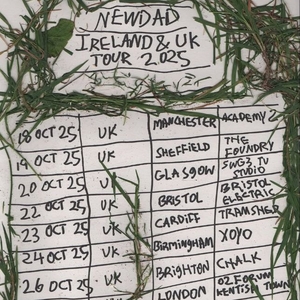 NEWDAD
IRELAND & UK
TOUR 2025
18 OCT 25 UK MANCHESTER ACADEMY 2
19 OCT 25 UK SHEFFIELD THE
FOUNDRY
20 OCT 25 UK GLASGOW SWG3 TV
STUDIO
22 OCT 25 UK BRISTOL BRISTOL
ELECTRIC
23 OCT 25 UK CARDIFF TRAMSHED
24 OCT 25 UK BIRMINGHAM XOYO
26 OCT 25 UK BRIGHTON CHALK
LONDON O2 FORUM
KENTISH TOWN